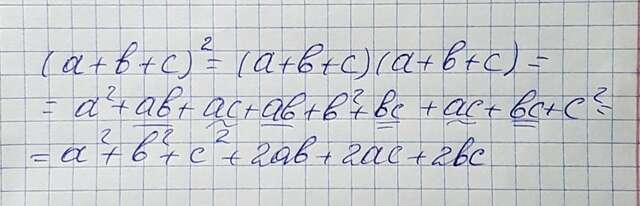 (a+b+c)²= (a+b+c)(a+b+c) =
= a²+ab+ac+ab+b²+bc +ac+bc+c²=
= a²+b²+c²+2ab+2ac+2bc